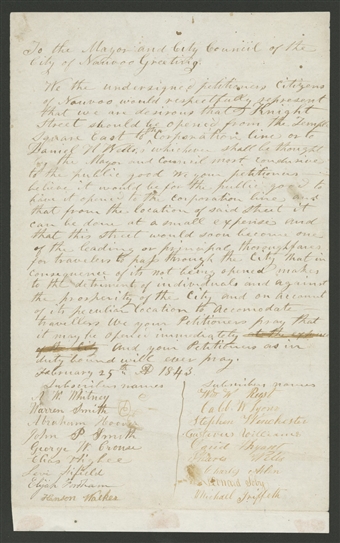 To the Mayor and City Council of the
City of Nauvoo Greeting.
We the undersigned petitioners Citizens
of Nauvoo would respectfully represent
that we are desirous that Knight
Street should be opened from the Temple
Square East to Corporation line or to
Daniel H Wells, whichever shall be thought
by the Mayor and Council most conducive
to the public good we your petitioners
believe it would be for the public good to
have it opened to the corporation line and
that from the location of said street it
can be done at a small expense, and
that this street would soon become one
of the leading or principal thoroughfares
for travelers to pass through the City that in
consequence of its not being opened makes
to the detriment of individuals and against
the prosperity of the City and on account
of its peculiar location to accomodate
travellers We your Petitioners pray that
it may be opened immediately
and your Petitioners as in
duty bound will ever pray.
February 25th AD 1843
Subscribers names
Subscribers names
Warren Smith
Abraham
John P Smith
George W Crouse
Elias Higbee
Levi
Elijah Fordham
Henson Walker
Wm W
Calb W Lyons
Stephen Winchester
Williams
David
Charles Allen
Leonard
Michael Griffith